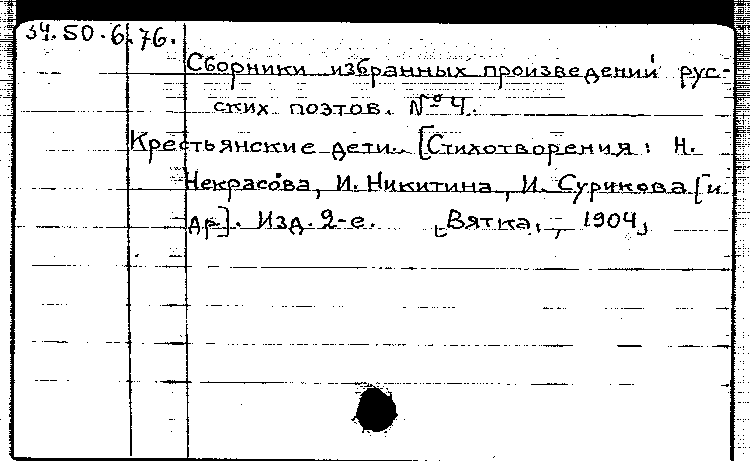 34.50.6.76.
Сборники избранных произведений рус-
ских поэтов. № 4.
Крестьянские дети. [Стихотворения: Н.
Некрасова, И. Никитина, И. Сурикова [и
др]. Изд. 2-е. [Вятка, 1904]